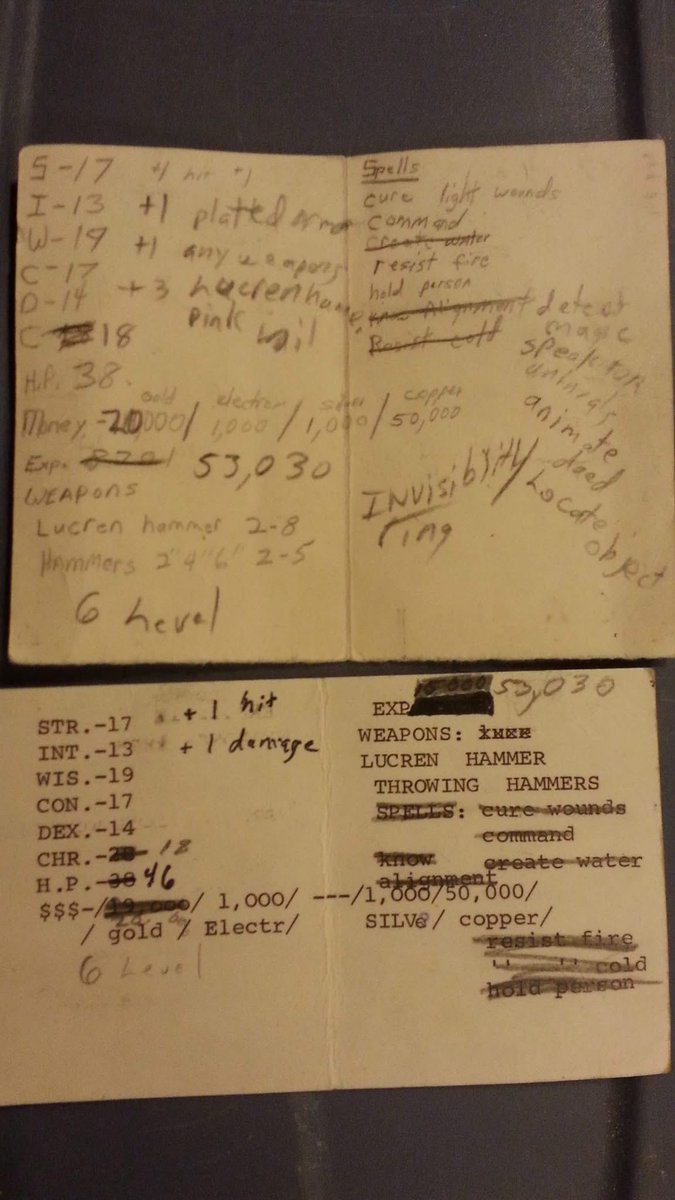 S-17 +1 hit +1
I-13 +1 platted armor
W-19 +1 any weapons
C-17
D-14 +3 Lucren hammer
C- 18 pink
H.P. 38.
gold electrum silver copper
Money -20,000/ 1,000/ 1,000/ 50,000
Exp. 8701 53,030
WEAPONS
Lucren hammer 2-8
Hammers 2"4"6" 2-5
6 Level
Spells
cure light wounds
command
create water
resist fire
hold person
know Alignment detect
magic
Resist cold
speak
animals
animate
dead
Locate
object
INVisiblity/
ring
STR.-17 +1 hit
INT.-13 +1 damage
WIS.-19
CON.-17
DEX.-14
CHR.-20 18
H.P.-38 46
$$$-/19,000/ 1,000/ ---/1,000/50,000/
/ gold / Electr/ SILVe/ copper/
6 Level
EXP 53,030
WEAPONS:
LUCREN HAMMER
THROWING HAMMERS
SPELLS: cure wounds
command
know create water
alignment
resist fire
" " cold
hold person